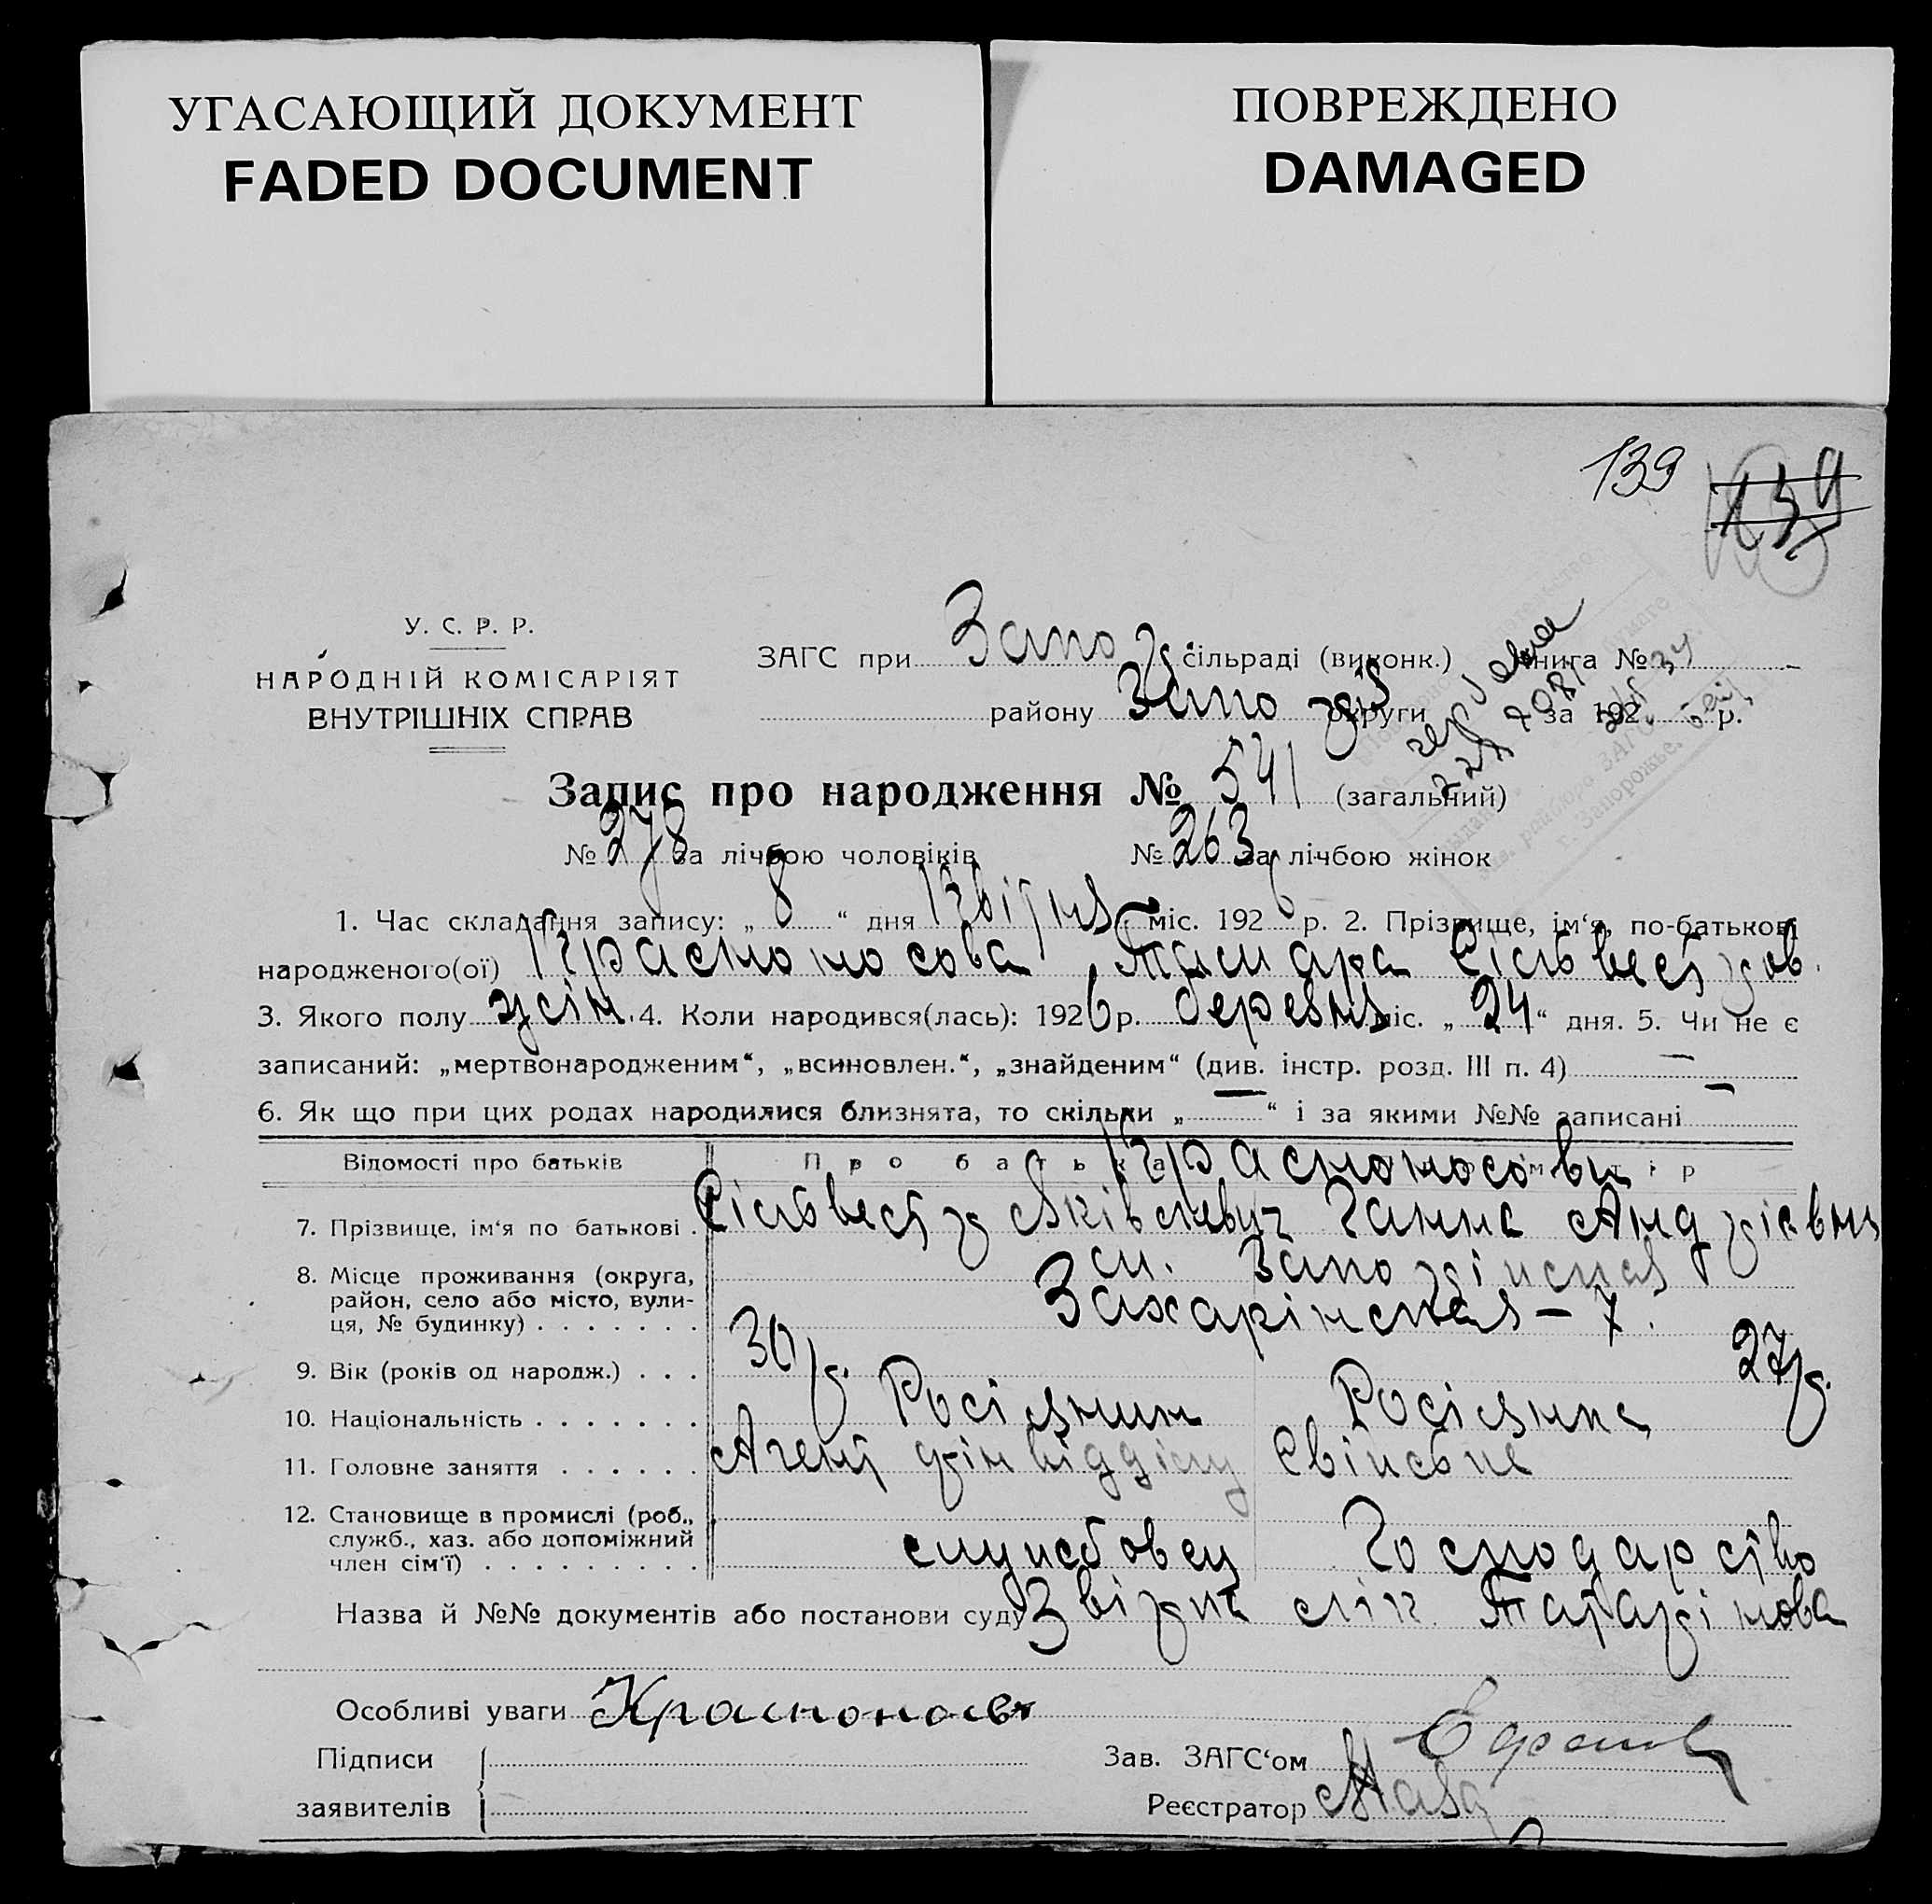 УГАСАЮЩИЙ ДОКУМЕНТ
FADED DOCUMENT
ПОВРЕЖДЕНО
DAMAGED
139
139
У. С. Р. Р.
НАРОДНІЙ КОМІСАРІЯТ
ВНУТРІШНІХ СПРАВ
ЗАГС при Запор. сільраді (виконк.) Книга №
району Запоріз округи за 192 р.
Запис про народження № 541 (загальний)
№ 278 за лічбою чоловіків № 263 за лічбою жінок
1. Час складання запису: „ 8 “ дня Квітня міс. 1926 р. 2. Прізвище, ім‘я, по-батькові
народженого(ої) Красноносова Тамара Сільвестров.
3. Якого полу жін. 4. Коли народився(лась): 1926 р. березня міс. „ 24 “ дня. 5. Чи не є
записаний: „мертвонародженим“, „всиновлен.“, „знайденим“ (див. інстр. розд. III п. 4) —
6. Як що при цих родах народилися близнята, то скільки „ — “ і за якими №№ записані —
Відомості про батьків Про батька матір
Красноносови
7. Прізвище, ім‘я по батькові . Сільвестр Яківлевич Ганна Андріевна
8. Місце проживання (округа, район, село або місто, вулиця, № будинку) . . . . . . . м. Запоріжжя
Захарінская – 7.
9. Вік (років од народж.) . . . 30 р. 27 р.
10. Національність . . . . . . . Росіянин Росіянка
11. Головне заняття . . . . . . Агент фінвідділу Свійське
12. Становище в промислі (роб., служб., хаз. або допоміжний член сім‘ї) . . . . . . . . . службовец Господарство
Назва й №№ документів або постанови суду Звірка лік. Татарінова
Особливі уваги Красноносов
Підписи
заявителів
Зав. ЗАГС‘ом
Реєстратор